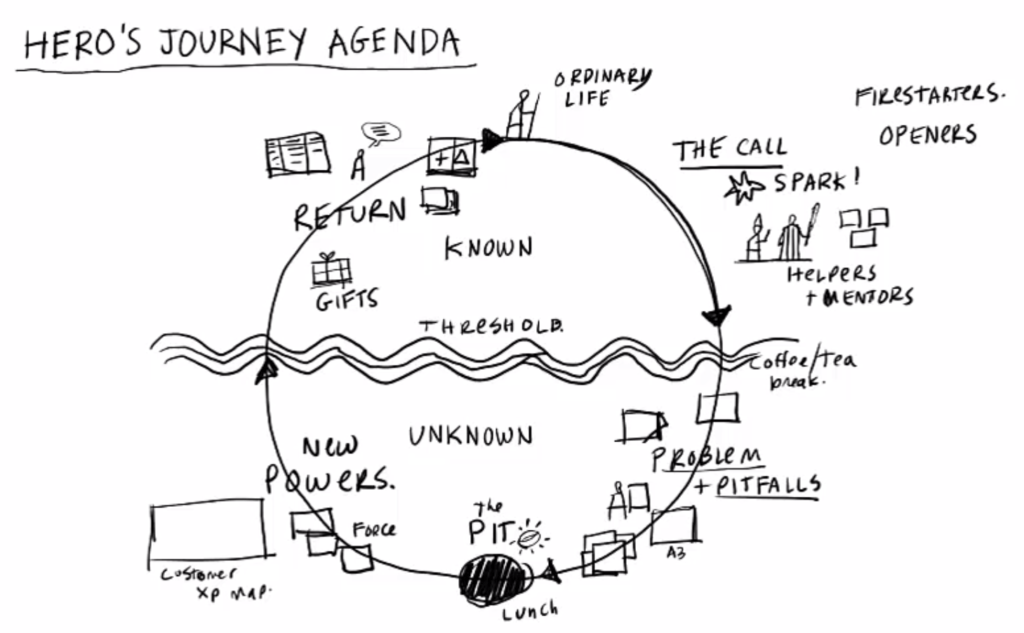 HERO'S JOURNEY AGENDA
ORDINARY
LIFE
FIRESTARTERS.
OPENERS
THE CALL
SPARK!
HELPERS
+ MENTORS
RETURN
KNOWN
GIFTS
THRESHOLD.
Coffee/Tea
break.
UNKNOWN
PROBLEM
+ PITFALLS
A3
the
PIT
LUNCH
NEW
POWERS.
FORCE
CUSTOMER
XP MAP.